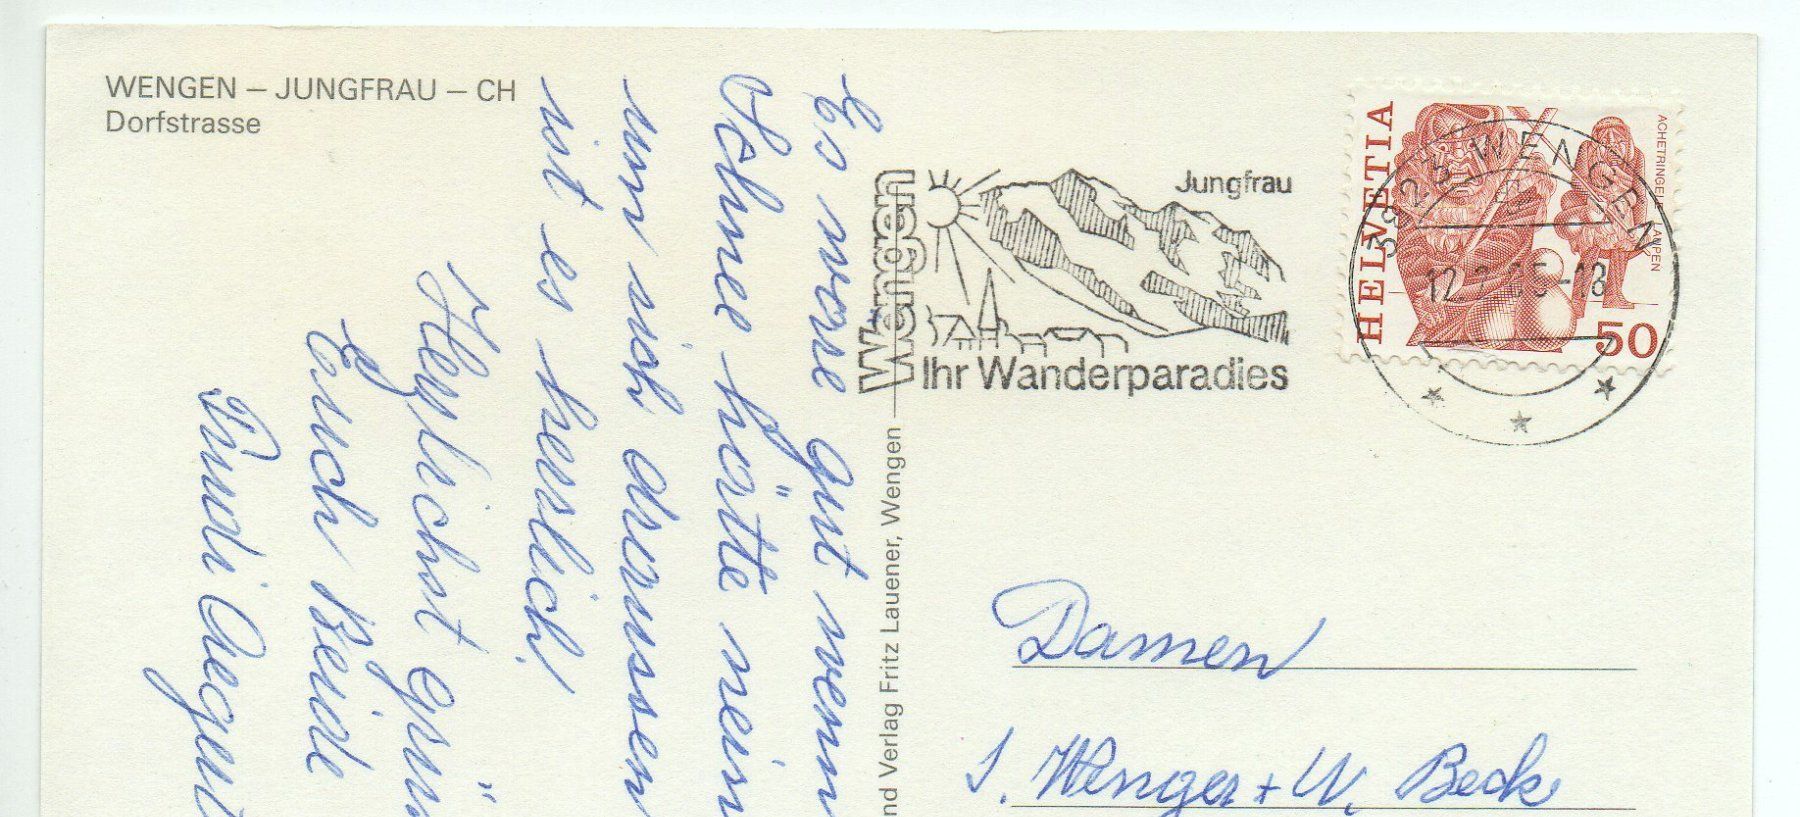 WENGEN – JUNGFRAU – CH
Dorfstrasse
Es wäre gut wenn
Schnee hätte nein
um sich draussen
ist es herrlich!
Herzlichst grüs
Euch Beide
Trudi Aegert
nd Verlag Fritz Lauener, Wengen
Wengen
Jungfrau
Ihr Wanderparadies
HELVETIA
ACHETRINGELE LAUPEN
50
3823 WENGEN
-18
Damen
S. Wenger + W. Beck